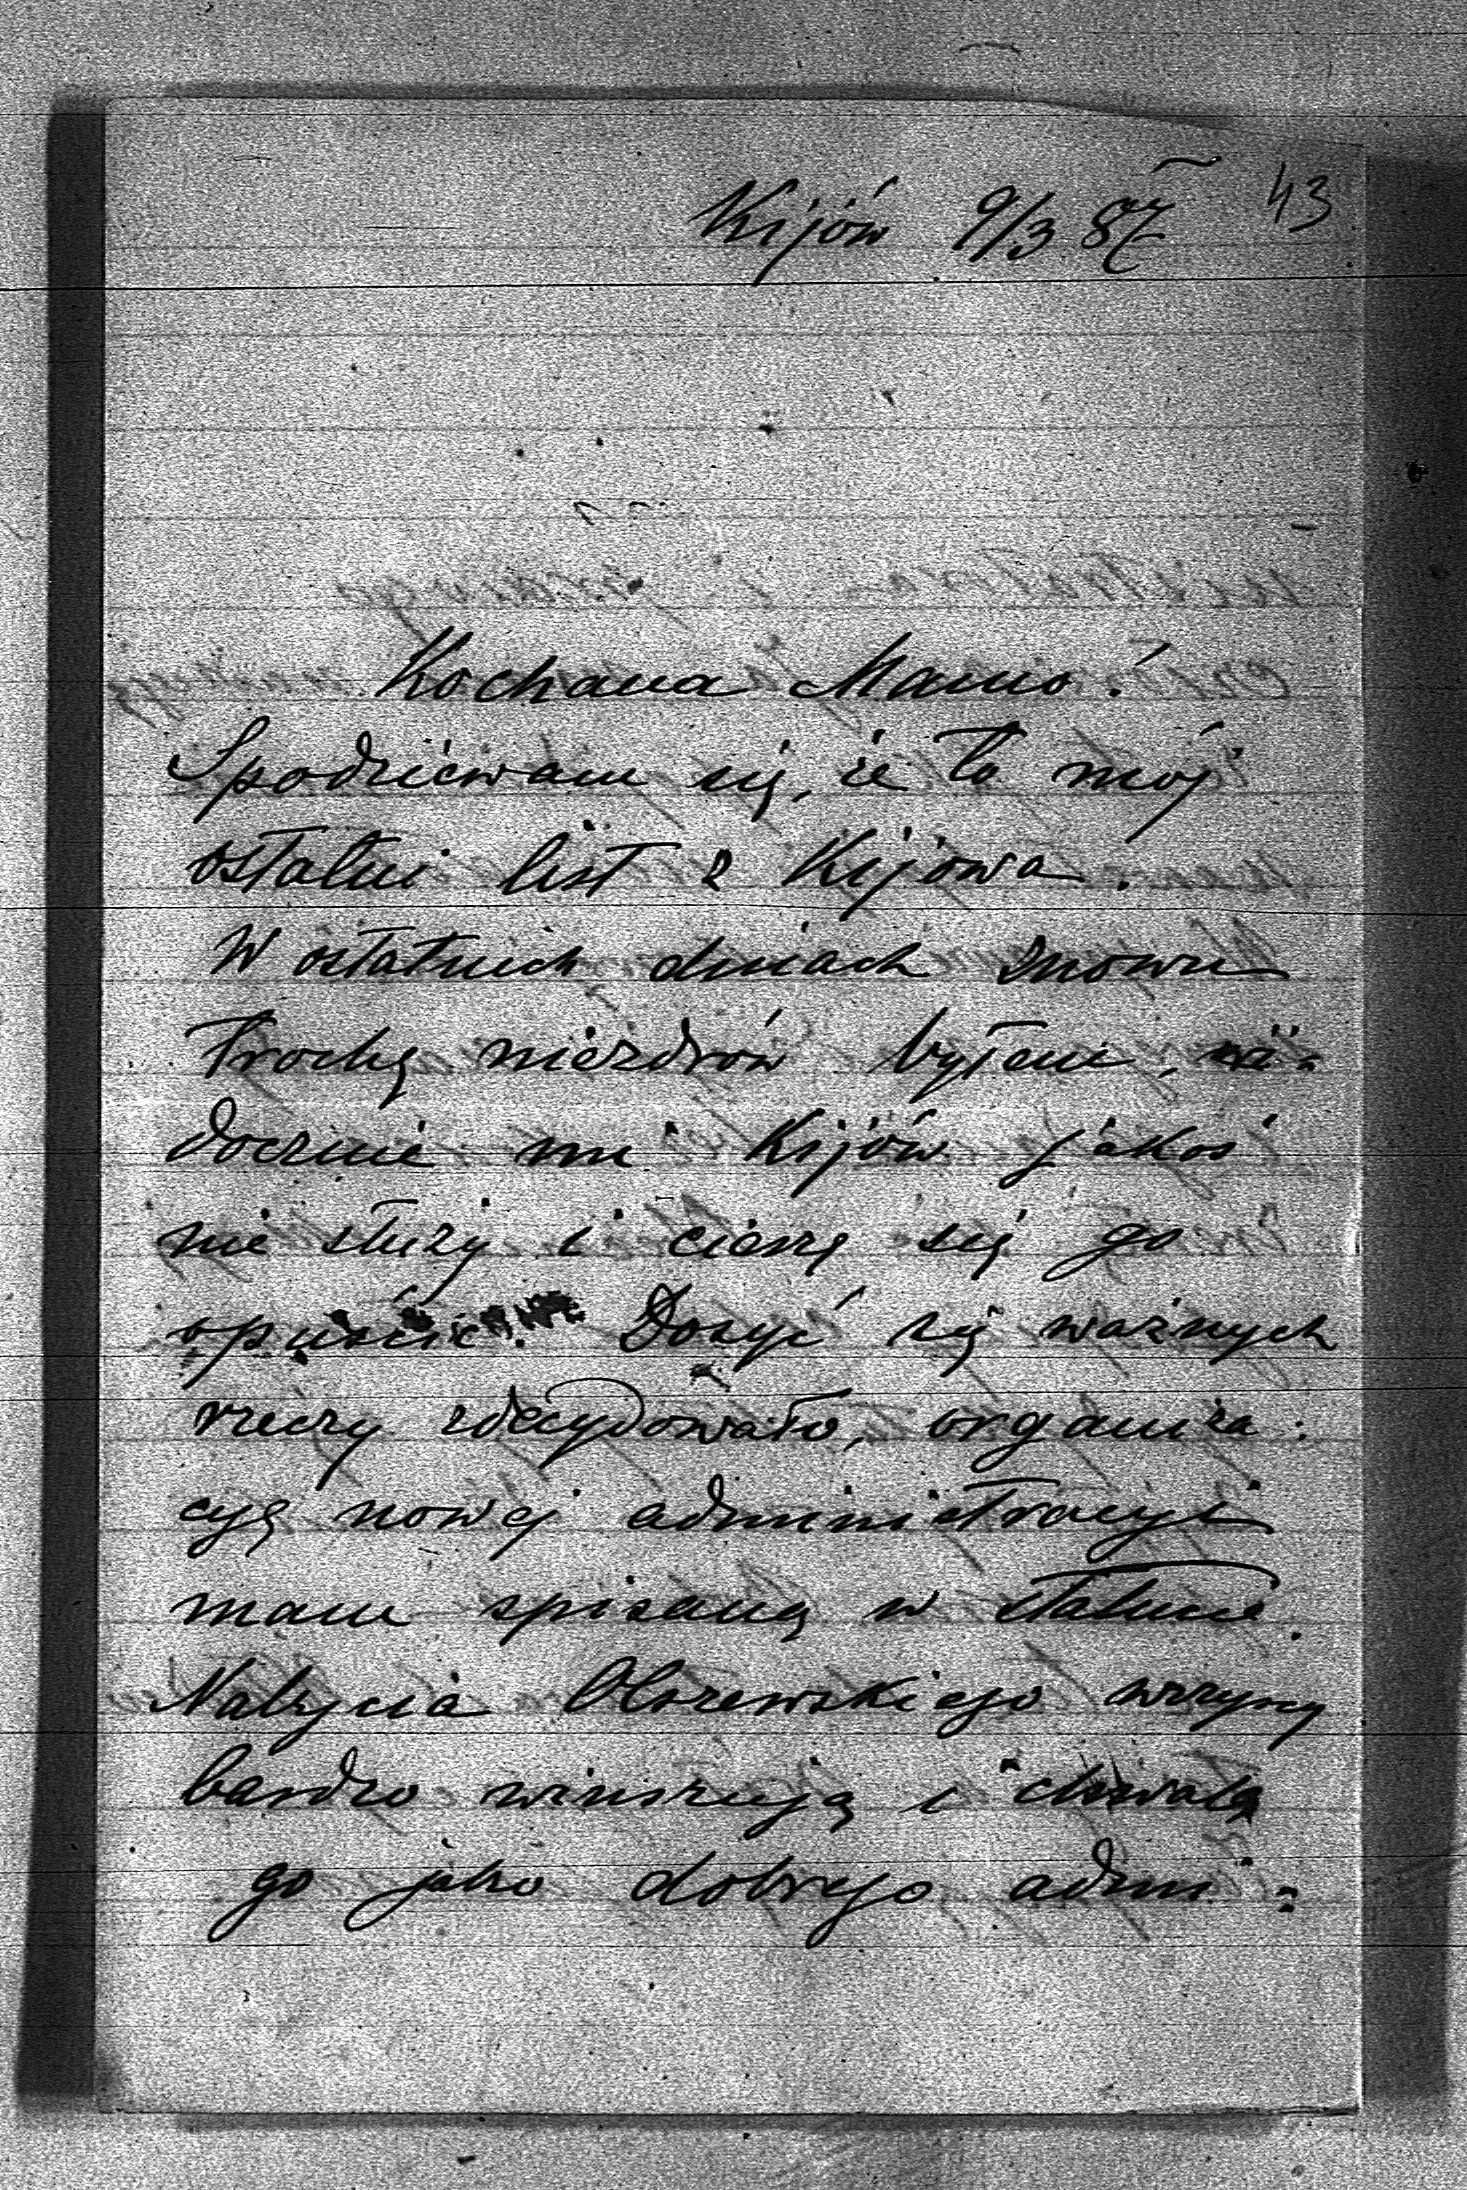 Kijów 9/3 87 43
Kochana Mamo!
Spodziewam się, że to mój
ostatni list z Kijowa.
W ostatnich dniach znowu
trochę niezdrów byłem, wi-
docznie mi Kijów jakoś
nie służy i cieszę się go
opuścić. Dosyć się ważnych
rzeczy zdecydowało, organiza-
cyę nowej administracyi
mam spisaną w statucie.
Nabycia Olszewskiego wszyscy
bardzo winszują i chwalą
go jako dobrego admi-